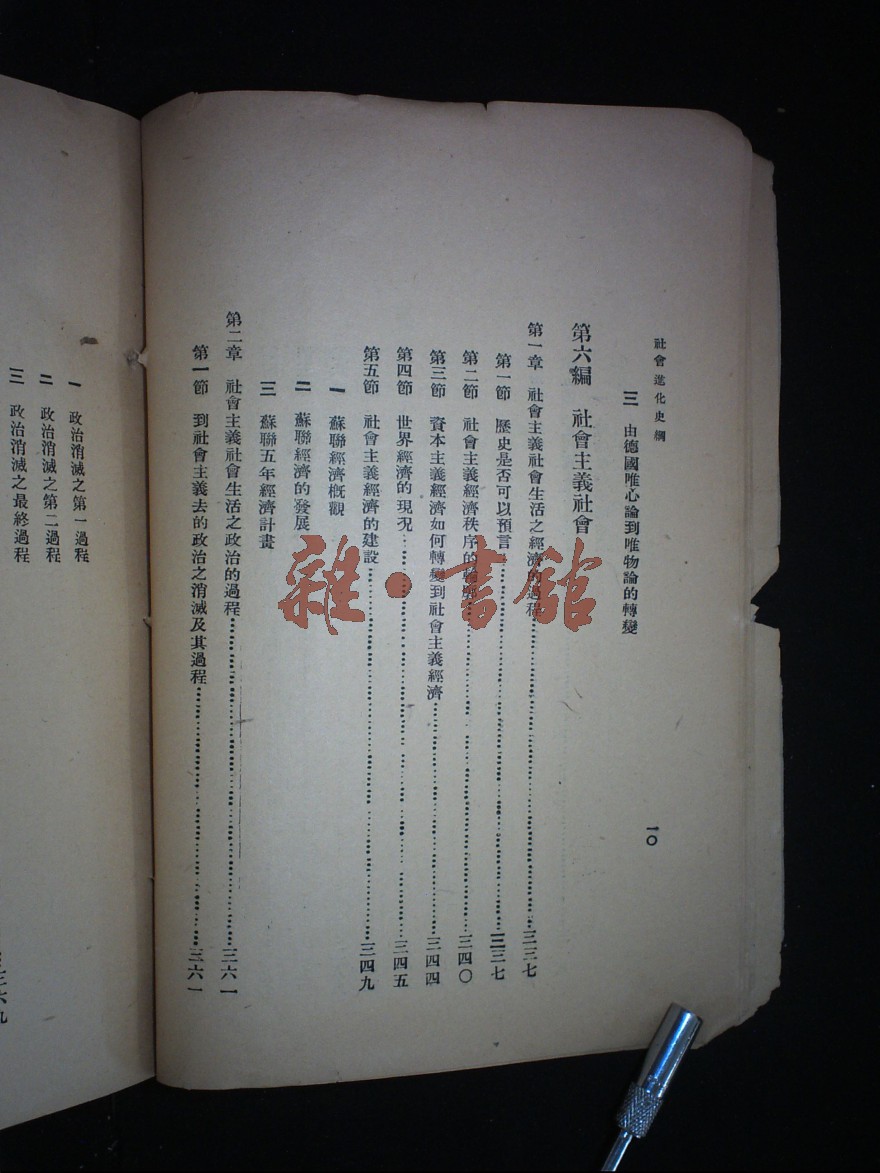 社會進化史綱
一〇
三 由德國唯心論到唯物論的轉變
第六編 社會主義社會
第一章 社會主義社會生活之經濟的過程……三三七
第一節 歷史是否可以預言……三三七
第二節 社會主義經濟秩序的……三四〇
第三節 資本主義經濟如何轉變到社會主義經濟……三四四
第四節 世界經濟的現况……三四五
第五節 社會主義經濟的建設……三四九
一 蘇聯經濟概觀
二 蘇聯經濟的發展
三 蘇聯五年經濟計畫
第二章 社會主義社會生活之政治的過程……三六一
第一節 到社會主義去的政治之消滅及其過程……三六一
一 政治消滅之第一過程
二 政治消滅之第二過程
三 政治消滅之最終過程
雜·書館